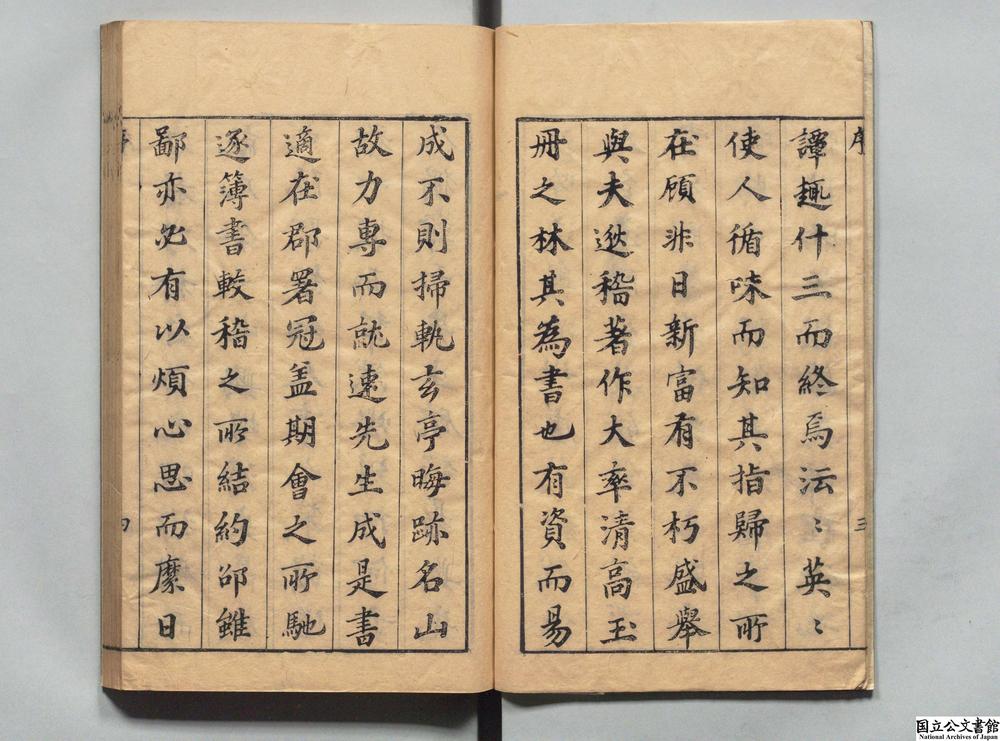 序
三
譚趣什三而終焉沄〻英〻
使人循味而知其指歸之所
在顧非日新富有不朽盛舉
與夫逖稽著作大率清高玉
冊之林其為書也有資而易
成不則掃軌玄亭晦跡名山
故力專而就速先生成是書
適在郡署冠盖期會之所馳
逐簿書較稽之所結約郤雖
鄙亦必有以煩心思而糜日
序
四
国立公文書館
National Archives of Japan